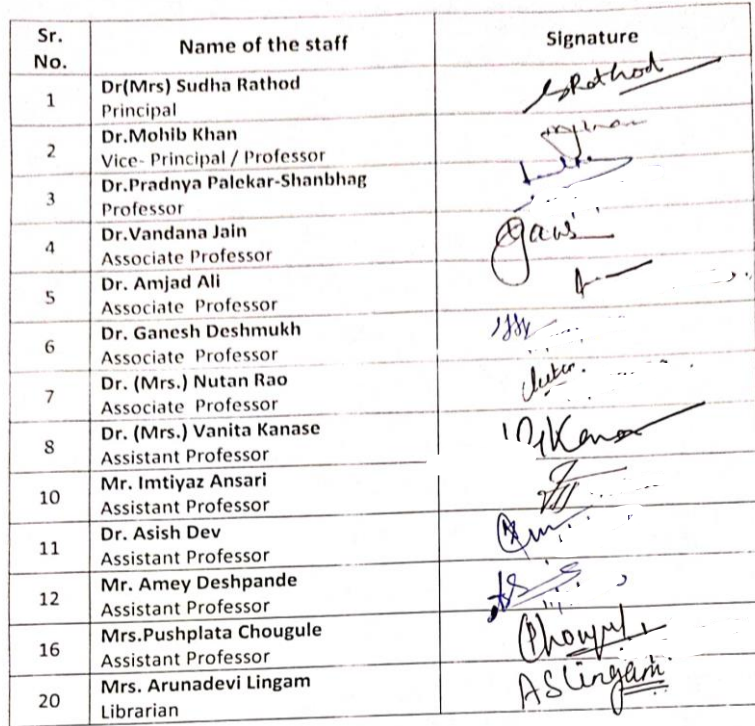 Sr. No.
Name of the staff
Signature
1
Dr(Mrs) Sudha Rathod
Principal
SRathod
2
Dr.Mohib Khan
Vice- Principal / Professor
3
Dr.Pradnya Palekar-Shanbhag
Professor
4
Dr.Vandana Jain
Associate Professor
5
Dr. Amjad Ali
Associate  Professor
6
Dr. Ganesh Deshmukh
Associate  Professor
7
Dr. (Mrs.) Nutan Rao
Associate  Professor
8
Dr. (Mrs.) Vanita Kanase
Assistant Professor
10
Mr. Imtiyaz Ansari
Assistant Professor
11
Dr. Asish Dev
Assistant Professor
12
Mr. Amey Deshpande
Assistant Professor
16
Mrs.Pushplata Chougule
Assistant Professor
20
Mrs. Arunadevi Lingam
Librarian
ASLingam